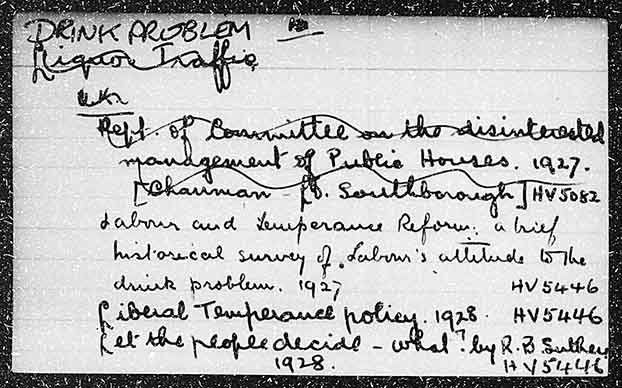 DRINK PROBLEM
Liquor Traffic
U.K.
Rept. of Committee on the disinterested
management of Public Houses. 1927.
[Chairman - Ld. Southborough] HV5082
Labour and Temperance Reform: a brief
historical survey of Labour's attitude to the
drink problem. 1927 HV5446
Liberal Temperance policy. 1928. HV5446
Let the people decide - what? by R. B. Suthers
1928. HV5446